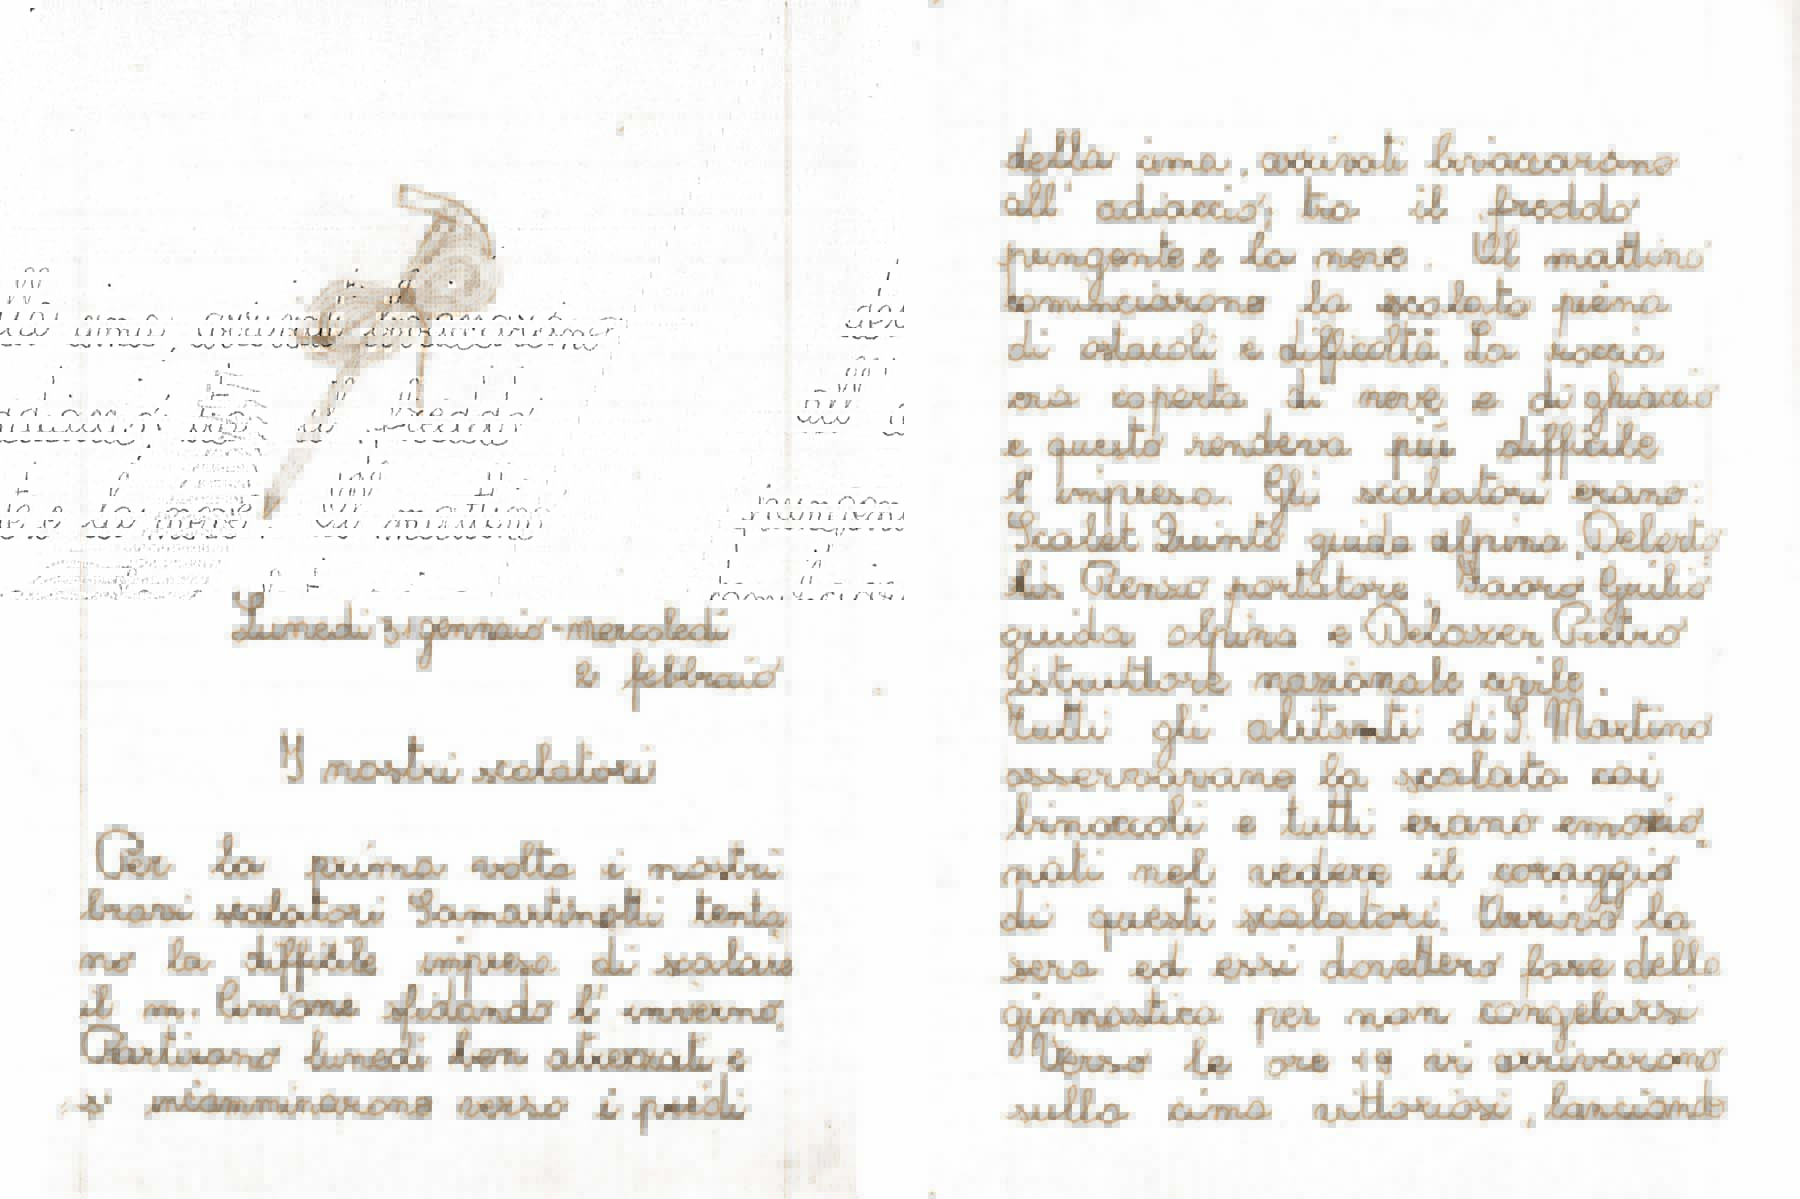 Lunedì 31 gennaio - mercoledì
2 febbraio
I nostri scalatori
Per la prima volta i nostri
bravi scalatori Samartinotti tenta
no la difficile impresa di scalare
il m. Cimone sfidando l'inverno.
Partirono lunedì ben attrezzati e
s' incamminarono verso i piedi
della cima, arrivati bivaccarono
all' adiaccio, tra il freddo
pungente e la neve. Il mattino
cominciarono la scalata piena
di ostacoli e difficoltà. La roccia
era coperta di neve e di ghiaccio
e questo rendeva più difficile
l' impresa. Gli scalatori erano:
Scalet Quinto guida alpina, Debertolis
Renzo portatore, Taoro Giulio
guida alpina e Delazer Pietro
istruttore nazionale civile.
Tutti gli abitanti di S. Martino
osservavano la scalata coi
binoccoli e tutti erano emozio
nati nel vedere il coraggio
di questi scalatori. Arrivò la
sera ed essi dovettero fare della
ginnastica per non congelarsi
Verso le ore vi arrivarono
sulla cima vittoriosi, lanciando